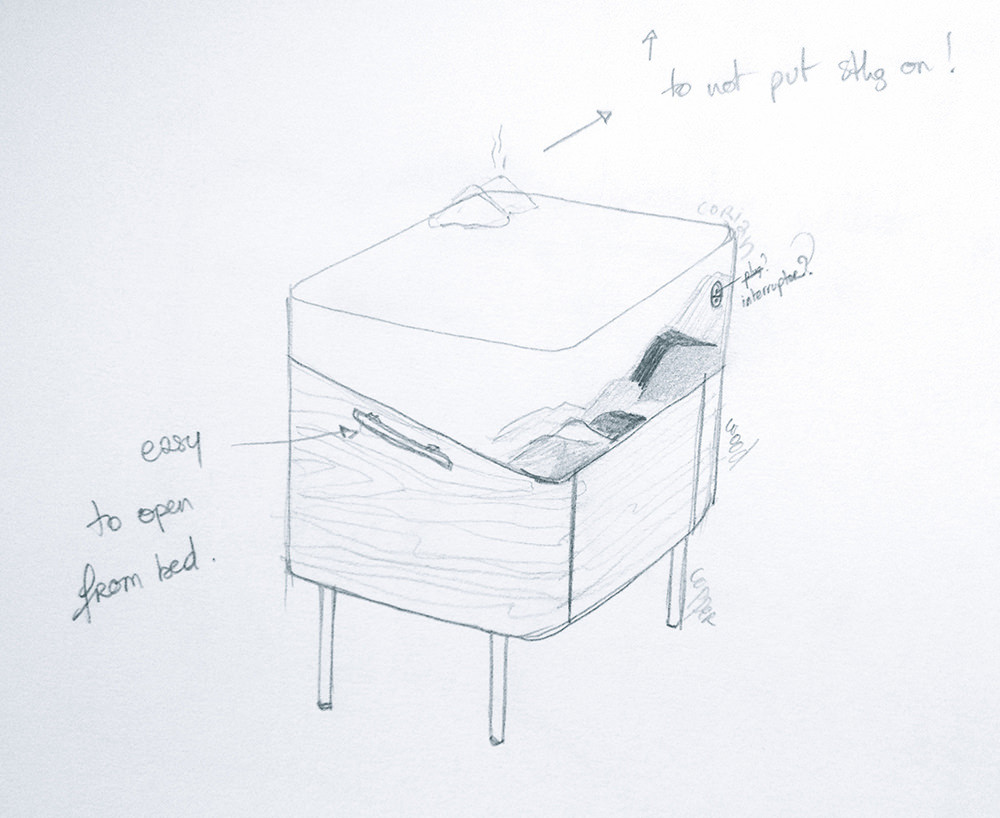 to not put sthg on !
CORIAN
plug?
interruptor?
easy
to open
from bed.
wood
COPPER